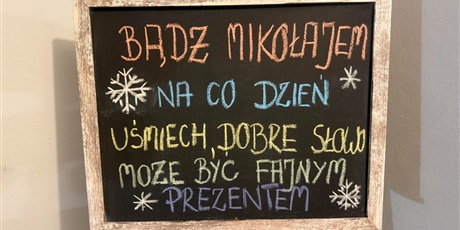 BĄDZ MIKOŁAJEM
NA CO DZIEŃ
UŚMIECH, DOBRE SŁOWO
MOZE BYĆ FAJNYM
PREZENTEM